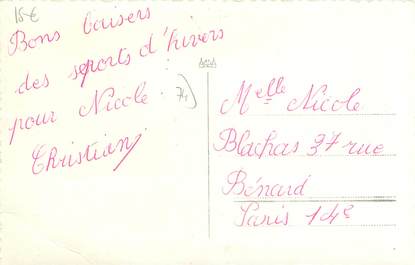 15€
Bons baisers
des sports d'hivers
pour Nicole.
Christian
74
Melle Nicole
Blachas 37 rue
Bénard
Paris 14e